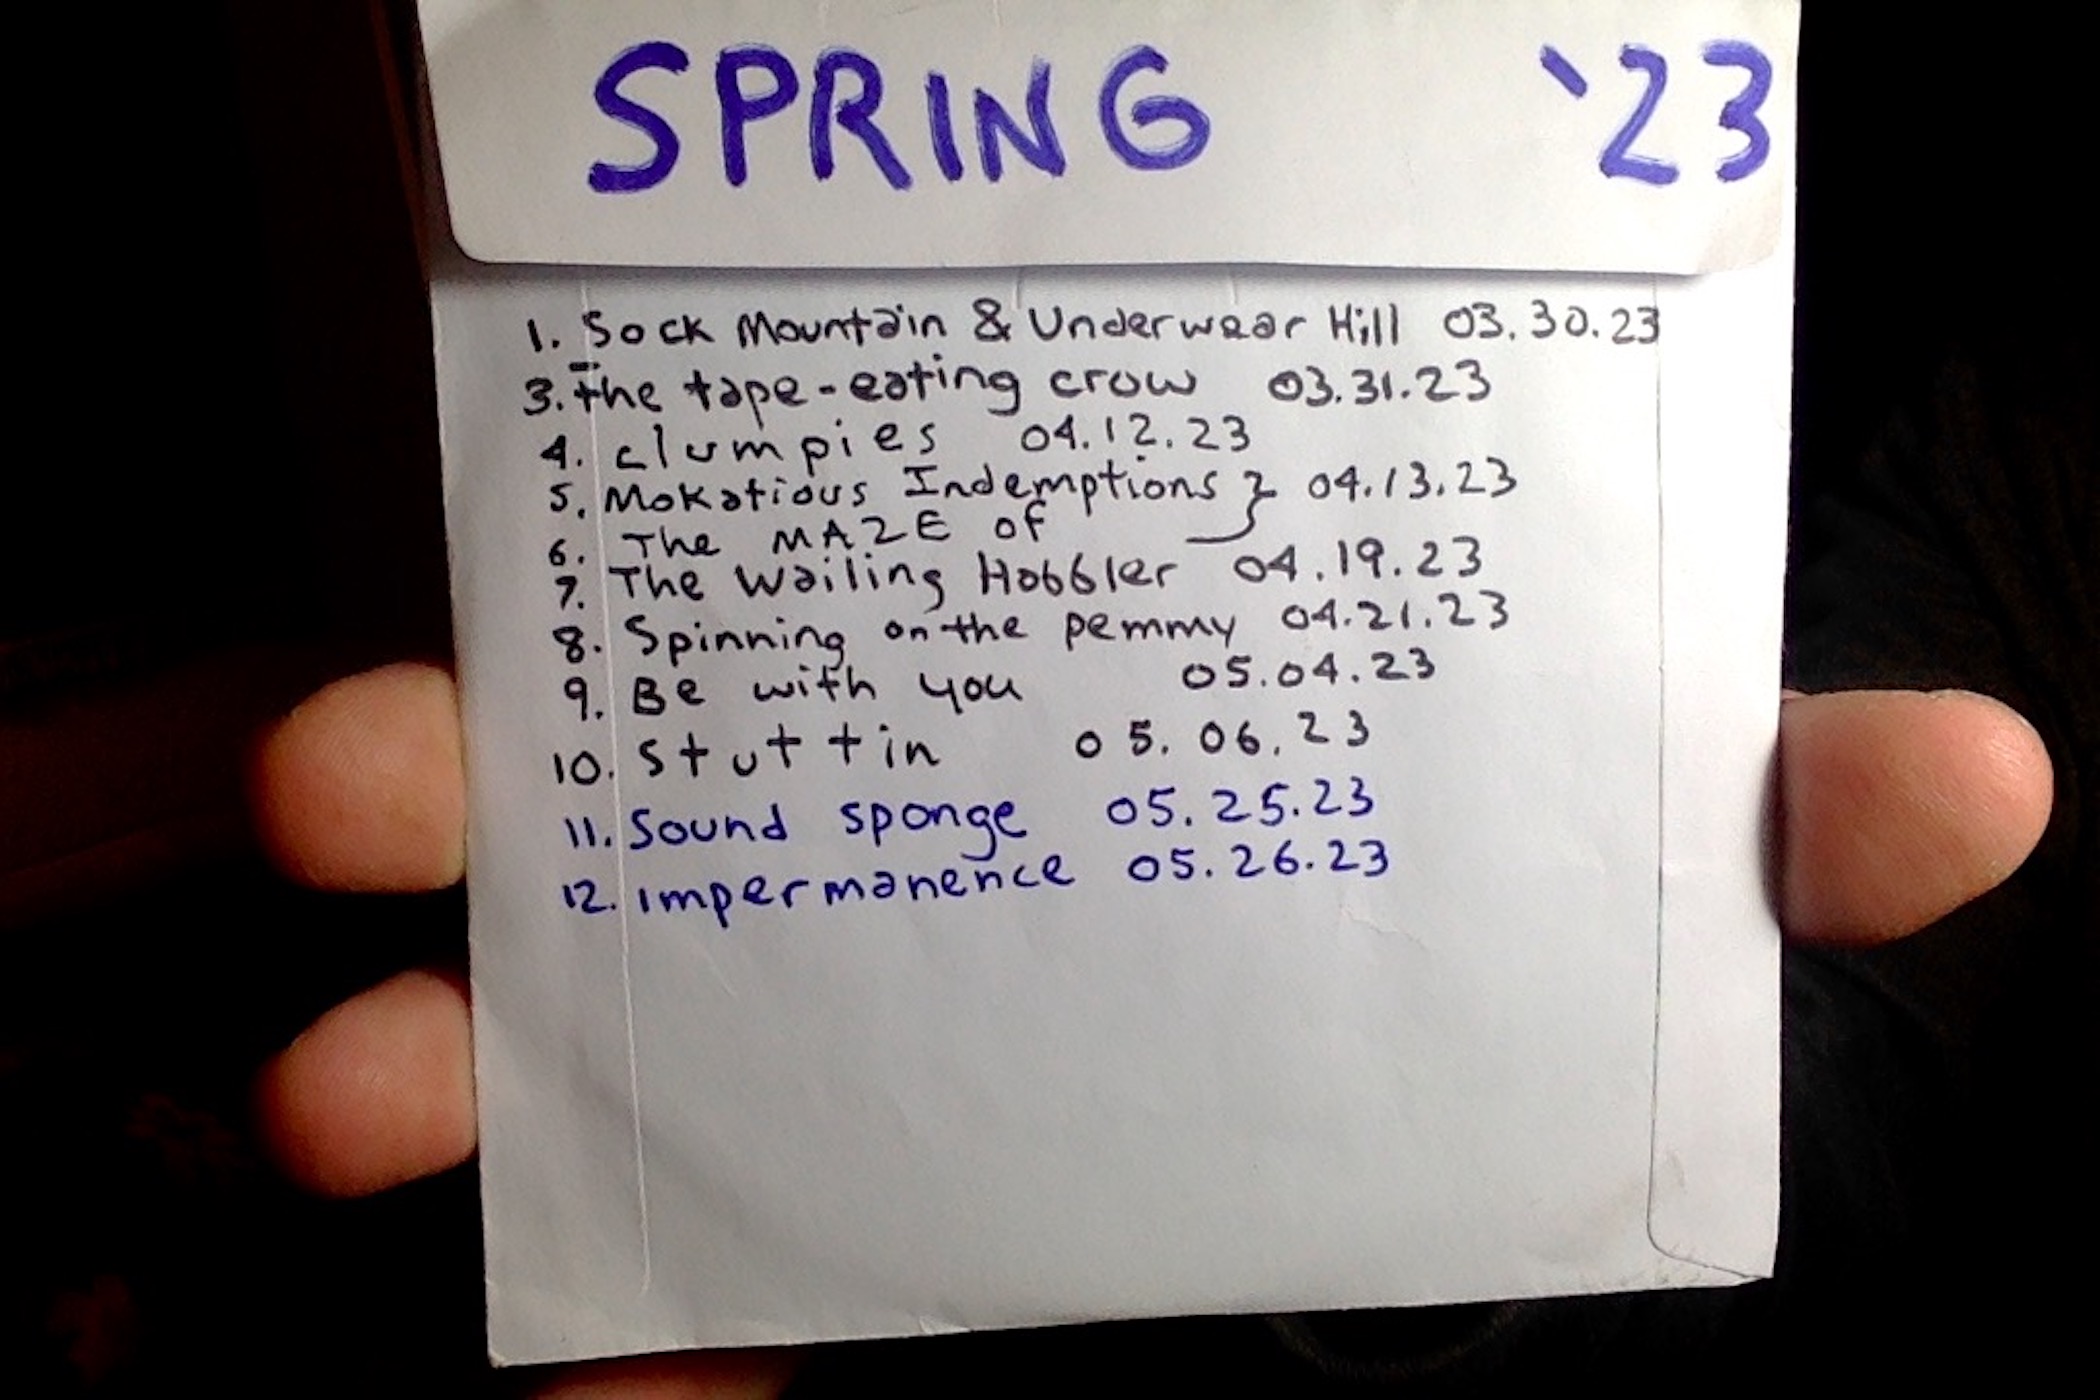 SPRING '23
1. Sock Mountain & Underwear Hill 03.30.23
3. The tape-eating crow 03.31.23
4. clumpies 04.12.23
5. Mokatious Indemptions } 04.13.23
6. The MAZE of
7. The Wailing Hobbler 04.19.23
8. Spinning on the pemmy 04.21.23
9. Be with you 05.04.23
10. Stuttin 05.06.23
11. Sound sponge 05.25.23
12. impermanence 05.26.23